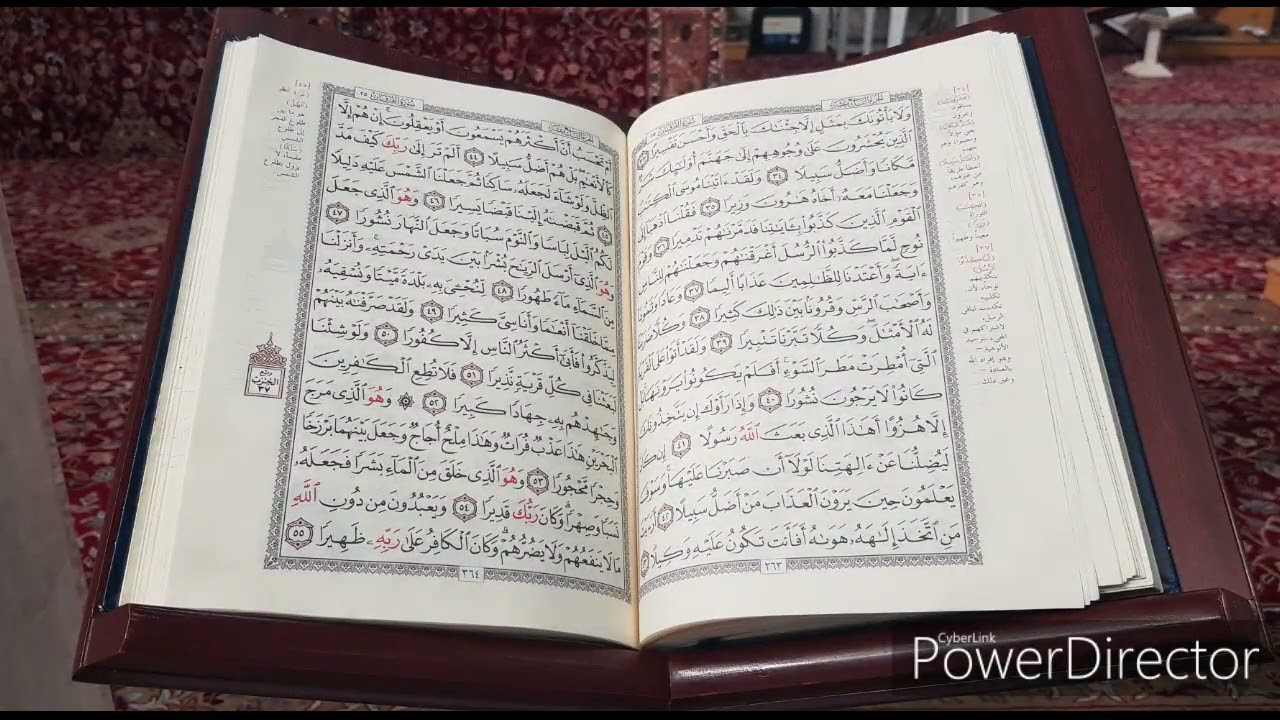 الجزء التاسع عشر
سورة الفرقان ٢٥
وَلَا يَأْتُونَكَ بِمَثَلٍ إِلَّا جِئْنَٰكَ بِٱلْحَقِّ وَأَحْسَنَ تَفْسِيرًا ٣٣
ٱلَّذِينَ يُحْشَرُونَ عَلَىٰ وُجُوهِهِمْ إِلَىٰ جَهَنَّمَ أُو۟لَٰٓئِكَ شَرٌّ
مَّكَانًا وَأَضَلُّ سَبِيلًا ٣٤ وَلَقَدْ ءَاتَيْنَا مُوسَى ٱلْكِتَٰبَ
وَجَعَلْنَا مَعَهُۥٓ أَخَاهُ هَٰرُونَ وَزِيرًا ٣٥ فَقُلْنَا ٱذْهَبَآ إِلَى
ٱلْقَوْمِ ٱلَّذِينَ كَذَّبُوا۟ بِـَٔايَٰتِنَا فَدَمَّرْنَٰهُمْ تَدْمِيرًا ٣٦ وَقَوْمَ
نُوحٍ لَّمَّا كَذَّبُوا۟ ٱلرُّسُلَ أَغْرَقْنَٰهُمْ وَجَعَلْنَٰهُمْ لِلنَّاسِ
ءَايَةً وَأَعْتَدْنَا لِلظَّٰلِمِينَ عَذَابًا أَلِيمًا ٣٧ وَعَادًا وَثَمُودَا۟
وَأَصْحَٰبَ ٱلرَّسِّ وَقُرُونًۢا بَيْنَ ذَٰلِكَ كَثِيرًا ٣٨ وَكُلًّا ضَرَبْنَا
لَهُ ٱلْأَمْثَٰلَ وَكُلًّا تَبَّرْنَا تَتْبِيرًا ٣٩ وَلَقَدْ أَتَوْا۟ عَلَى ٱلْقَرْيَةِ
ٱلَّتِىٓ أُمْطِرَتْ مَطَرَ ٱلسَّوْءِ أَفَلَمْ يَكُونُوا۟ يَرَوْنَهَا بَلْ
كَانُوا۟ لَا يَرْجُونَ نُشُورًا ٤٠ وَإِذَا رَأَوْكَ إِن يَتَّخِذُونَكَ
إِلَّا هُزُوًا أَهَٰذَا ٱلَّذِى بَعَثَ ٱللَّهُ رَسُولًا ٤١ إِن كَادَ
لَيُضِلُّنَا عَنْ ءَالِهَتِنَا لَوْلَآ أَن صَبَرْنَا عَلَيْهَا وَسَوْفَ
يَعْلَمُونَ حِينَ يَرَوْنَ ٱلْعَذَابَ مَنْ أَضَلُّ سَبِيلًا ٤٢ أَرَءَيْتَ
مَنِ ٱتَّخَذَ إِلَٰهَهُۥ هَوَىٰهُ أَفَأَنتَ تَكُونُ عَلَيْهِ وَكِيلًا ٤٣
٣٦٣
الجزء التاسع عشر
سورة الفرقان ٢٥
أَمْ تَحْسَبُ أَنَّ أَكْثَرَهُمْ يَسْمَعُونَ أَوْ يَعْقِلُونَ إِنْ هُمْ إِلَّا
كَٱلْأَنْعَٰمِ بَلْ هُمْ أَضَلُّ سَبِيلًا ٤٤ أَلَمْ تَرَ إِلَىٰ رَبِّكَ كَيْفَ مَدَّ
ٱلظِّلَّ وَلَوْ شَآءَ لَجَعَلَهُۥ سَاكِنًا ثُمَّ جَعَلْنَا ٱلشَّمْسَ عَلَيْهِ دَلِيلًا
٤٥ ثُمَّ قَبَضْنَٰهُ إِلَيْنَا قَبْضًا يَسِيرًا ٤٦ وَهُوَ ٱلَّذِى جَعَلَ
لَكُمُ ٱلَّيْلَ لِبَاسًا وَٱلنَّوْمَ سُبَاتًا وَجَعَلَ ٱلنَّهَارَ نُشُورًا ٤٧
وَهُوَ ٱلَّذِىٓ أَرْسَلَ ٱلرِّيَٰحَ بُشْرًۢا بَيْنَ يَدَىْ رَحْمَتِهِۦ وَأَنزَلْنَا
مِنَ ٱلسَّمَآءِ مَآءً طَهُورًا ٤٨ لِّنُحْـِۧىَ بِهِۦ بَلْدَةً مَّيْتًا وَنُسْقِيَهُۥ
مِمَّا خَلَقْنَآ أَنْعَٰمًا وَأَنَاسِىَّ كَثِيرًا ٤٩ وَلَقَدْ صَرَّفْنَٰهُ بَيْنَهُمْ
لِيَذَّكَّرُوا۟ فَأَبَىٰٓ أَكْثَرُ ٱلنَّاسِ إِلَّا كُفُورًا ٥٠ وَلَوْ شِئْنَا
لَبَعَثْنَا فِى كُلِّ قَرْيَةٍ نَّذِيرًا ٥١ فَلَا تُطِعِ ٱلْكَٰفِرِينَ
وَجَٰهِدْهُم بِهِۦ جِهَادًا كَبِيرًا ٥٢ ۞ وَهُوَ ٱلَّذِى مَرَجَ
ٱلْبَحْرَيْنِ هَٰذَا عَذْبٌ فُرَاتٌ وَهَٰذَا مِلْحٌ أُجَاجٌ وَجَعَلَ بَيْنَهُمَا بَرْزَخًا
وَحِجْرًا مَّحْجُورًا ٥٣ وَهُوَ ٱلَّذِى خَلَقَ مِنَ ٱلْمَآءِ بَشَرًا فَجَعَلَهُۥ
نَسَبًا وَصِهْرًا وَكَانَ رَبُّكَ قَدِيرًا ٥٤ وَيَعْبُدُونَ مِن دُونِ ٱللَّهِ
مَا لَا يَنفَعُهُمْ وَلَا يَضُرُّهُمْ وَكَانَ ٱلْكَافِرُ عَلَىٰ رَبِّهِۦ ظَهِيرًا ٥٥
٣٦٤
ربع
الحزب
٣٧
CyberLink
PowerDirector